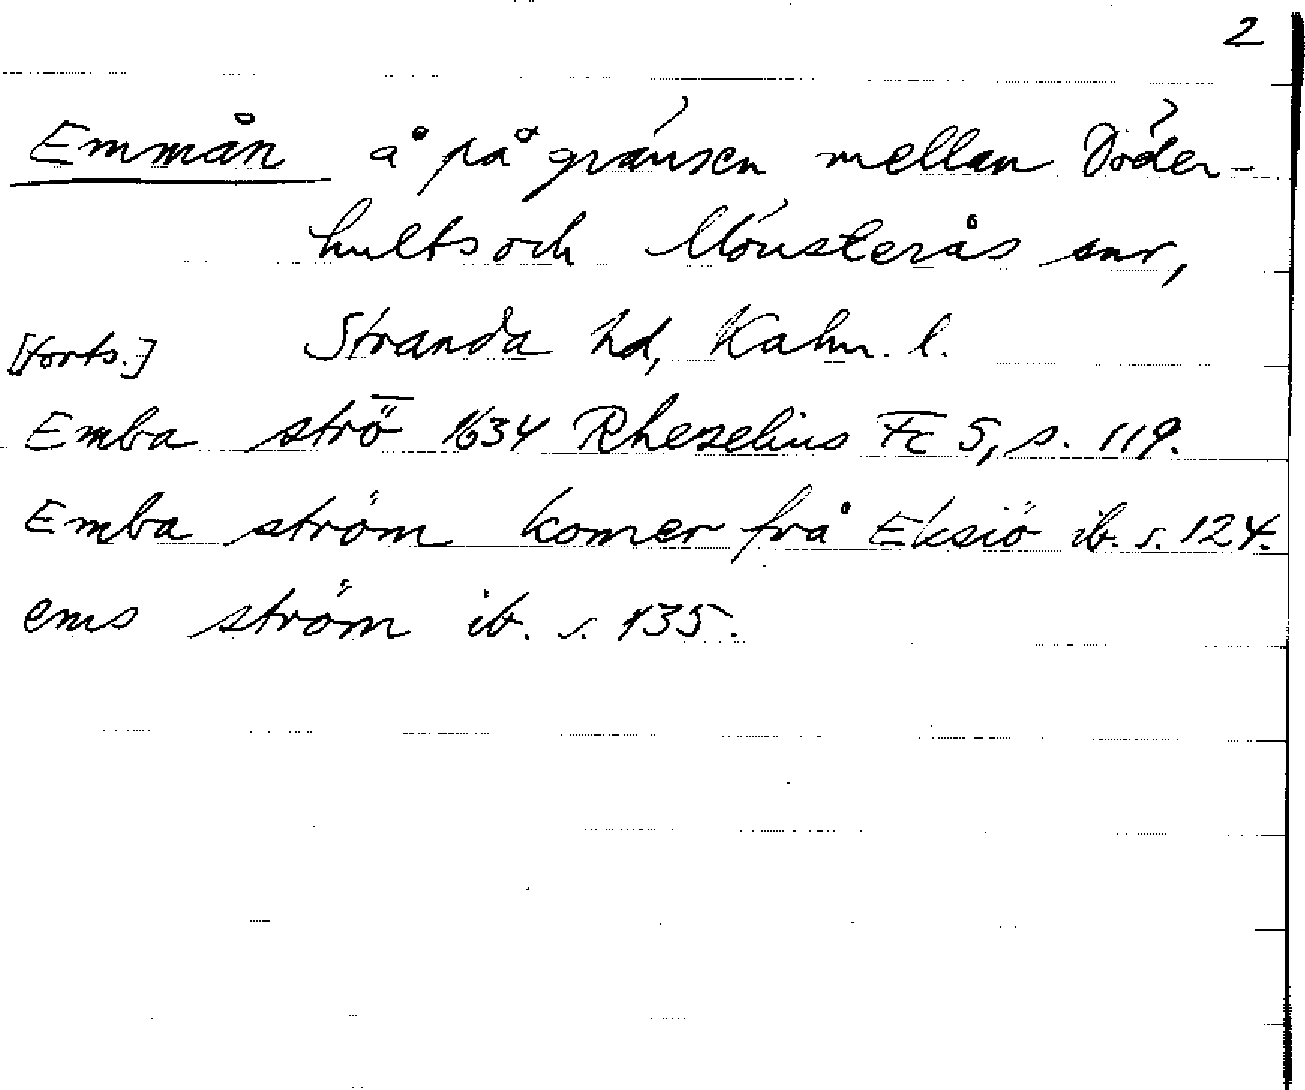 2
Emmån å på gränsen mellan Döder-
hults och Mönsterås snr,
[forts.] Stranda hd, Kalm. l.
Emba strö̅ 1634 Rhezelius Fc 5, s. 119.
Emba ström komer frå Eksiö ib. s. 124.
ems ström ib. s. 135.